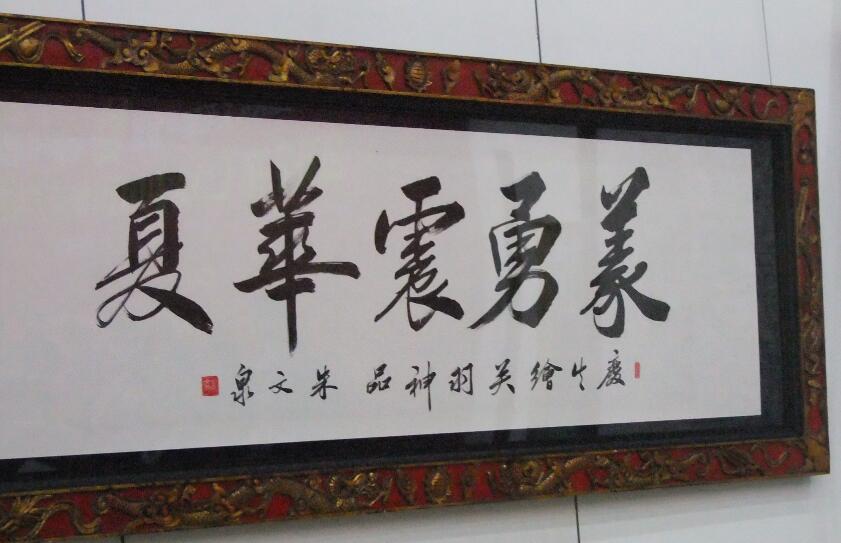 義勇震華夏
慶生繪关羽神品 朱文泉